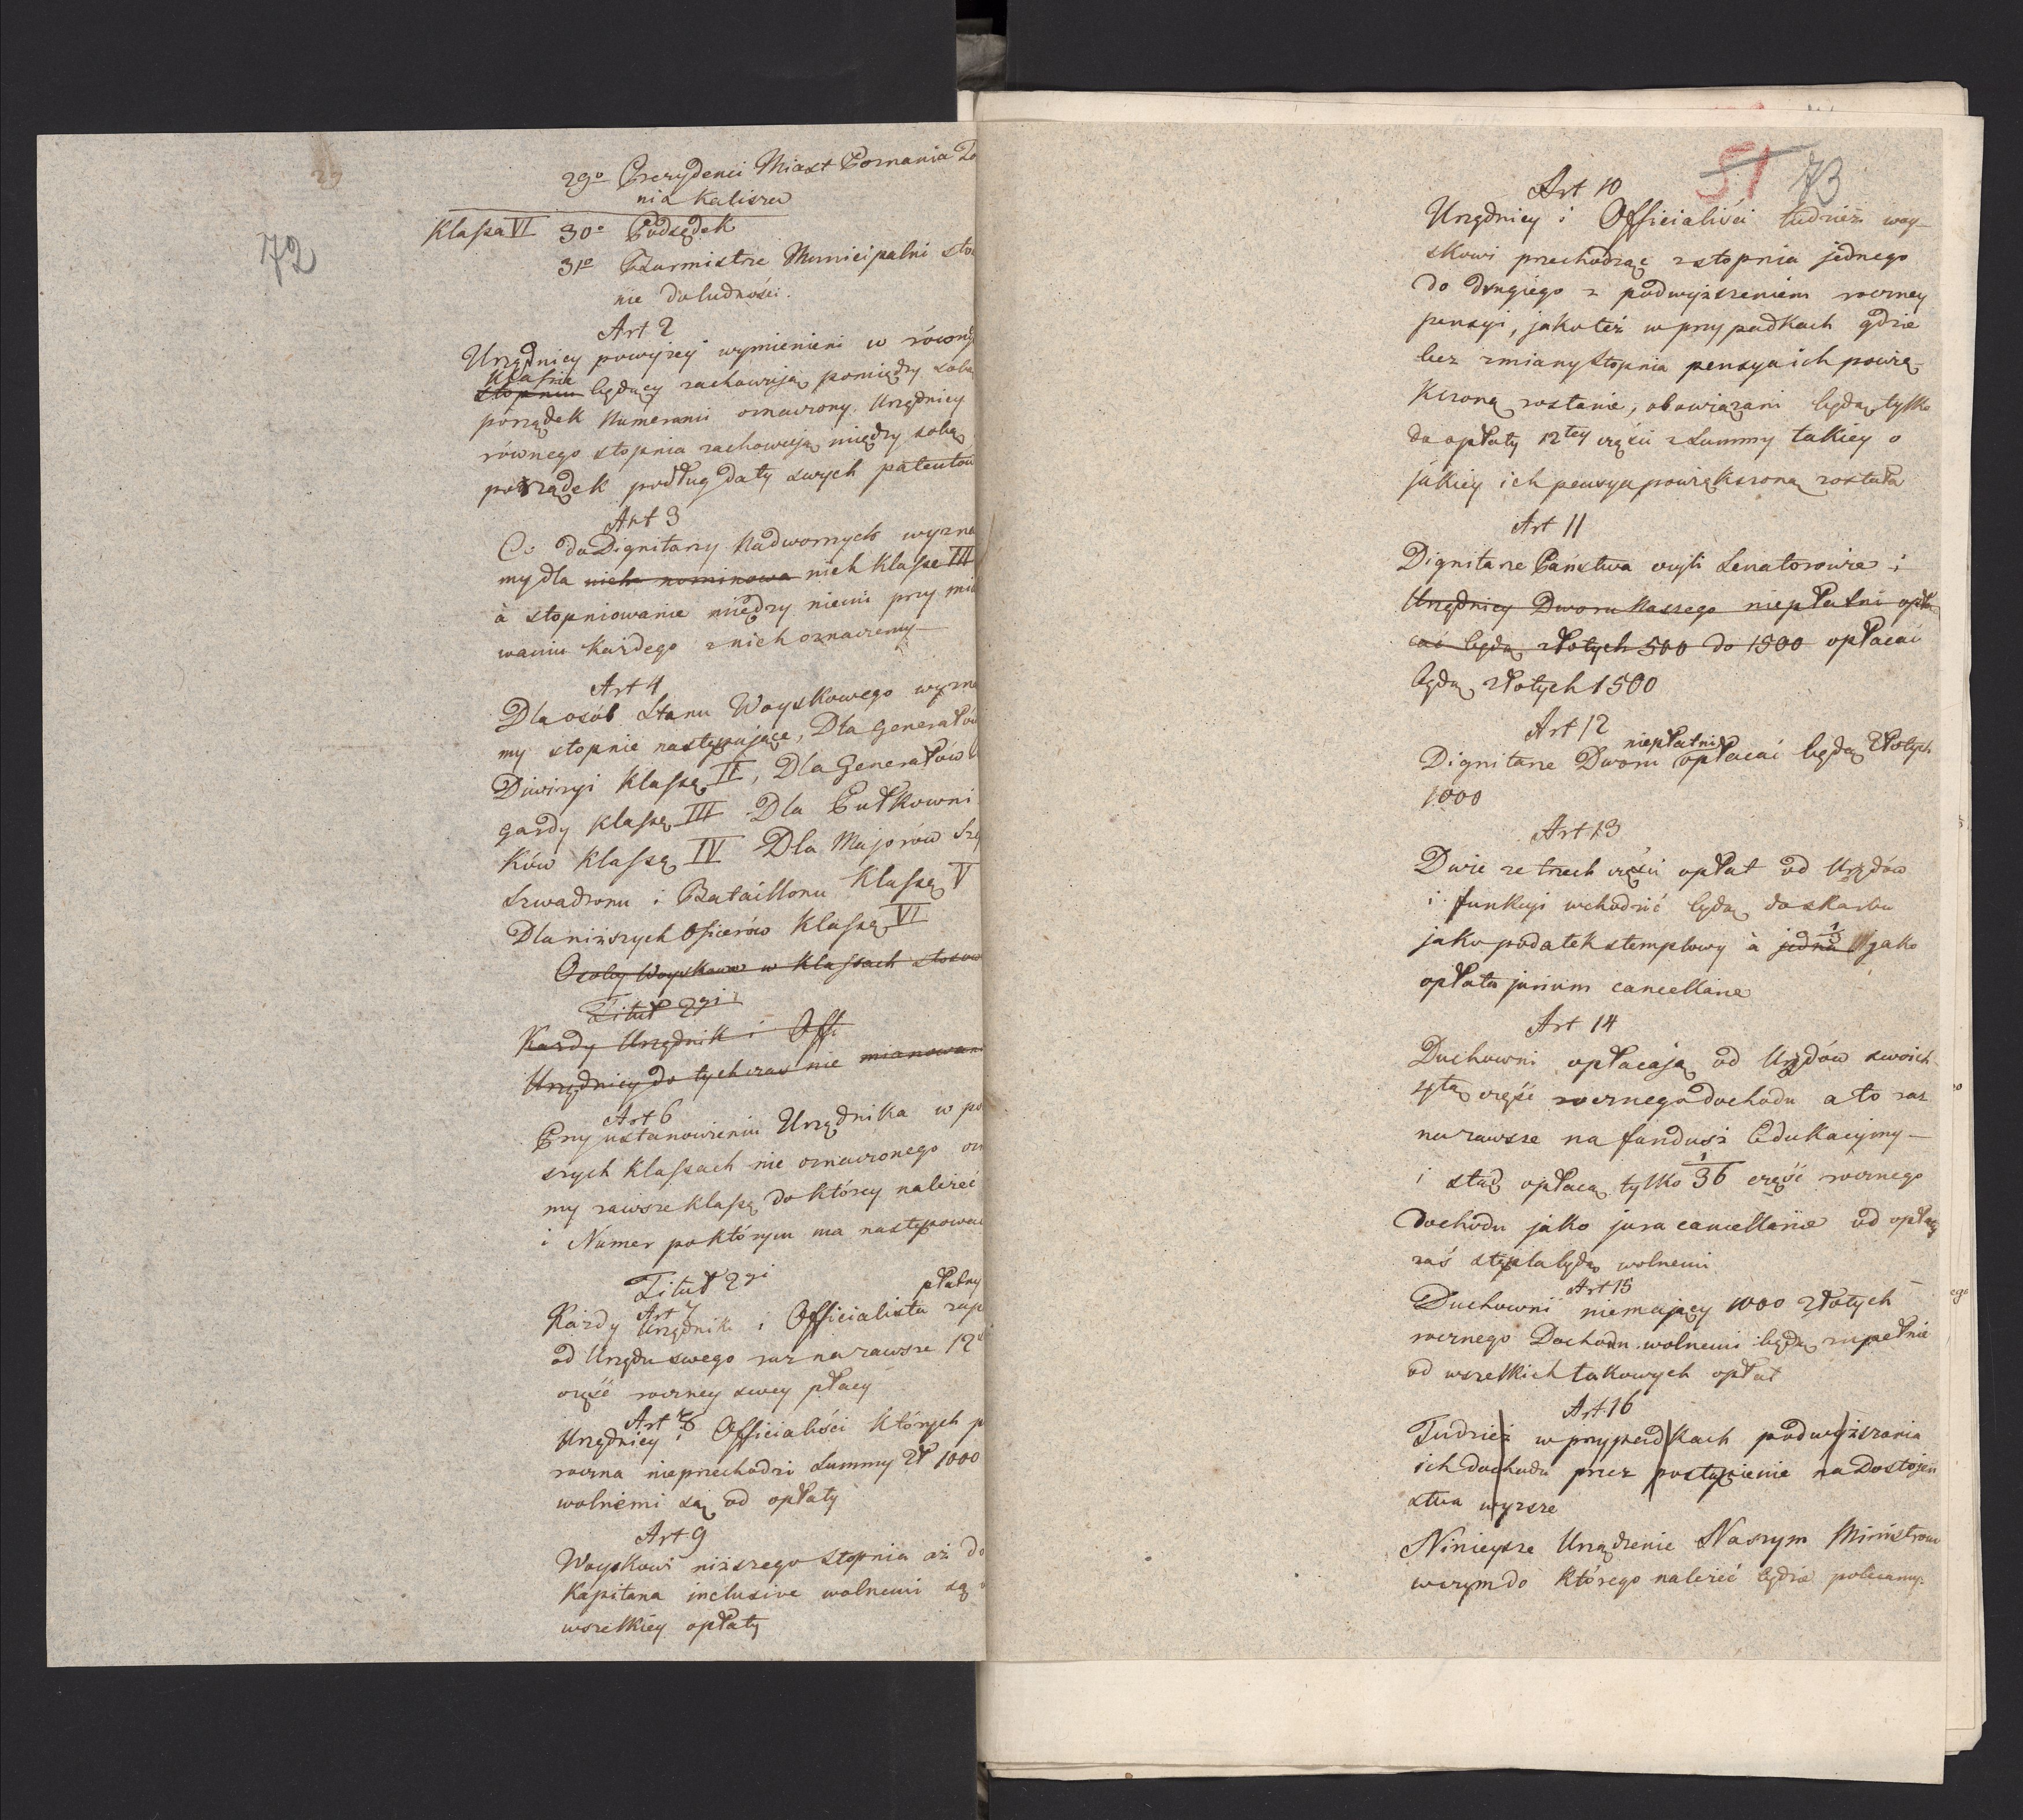 72
29o Prezydenci Miast Poznania To
nia Kalisza
Klassa VI 30o Podsędek
31o Burmistrze Municipalni sto
nie do ludności.
Art 2
Urzędnicy powyżey wymienieni w równey
Klassie
stopniu będący zachowują pomiędzy sobą
porządek Numerami oznaczony. Urzędnicy
równego stopnia zachowują między sobą
porządek podług daty swych patentów
Art 3
Co do Dignitarzy Nadwornych wyzna
my dla nich nominowa nich Klasse III
à stopniowanie między niemi przy mia
waniu każdego z nich oznaczemy
Art 4
Dla osób Stanu Woyskowego wyzna
my stopnie następujące, Dla Generałów
Diwizyi Klassę II, Dla Generałów
gady Klassę III Dla Pułkowni
ków Klassę IV Dla Majorów Sze
Szwadronu i Bataillonu Klassę V
Dla niższych Oficerów Klassę VI
Osoby Woyskowe w Klassach stosow
Tituł 2gi
Każdy Urzędnik i Offi
Urzędnicy do tychczas nie mianowani
Art 6
Przy ustanowieniu Urzędnika w po
szych Klassach nie oznaczonego ozn
my zawsze klassę do którey należeć
i Numer po którym ma następować
Tituł 2gi
Art 7 płatny
Każdy Urzędnik i Officialista zap
od Urzędu swego raz na zawsze 12
część roczney swey płacy
Art 8
Urzędnicy i Officialiści których p
roczna nieprzechodzi Summy Zł 1000
wolnemi są od opłaty
Art 9
Woyskowi niższego Stopnia aż do
Kapitana inclusive wolnemi są o
wszelkiey opłaty
51 73
Art 10
Urzędnicy i Officialiści tudzież woy-
skowi przechodząc z stopnia jednego
do drugiego z podwyższeniem roczney
pensyi, jako też w przypadkach gdzie
bez zmiany stopnia pensya ich powię
kszoną zostanie, obowiązani będą tylko
do opłaty 12tey części z Summy takiey o
jakiey ich pensya powiększoną została
Art 11
Dignitarze Państwa czyli Senatorowie i
Urzędnicy Dworu Naszego niepłatni opła
cać będą złotych 500 do 1500 opłacać
będą złotych 1500
Art 12
niepłatni
Dignitarze Dworu opłacać będą Złotych
1000
Art 13
Dwie ze trzech części opłat od Urzędów
i funkcyi wchodzić będą do skarbu
jako podatek stemplowy à jedna 1/3 jako
opłata jurium cancellariæ
Art 14
Duchowni opłacają od Urzędów swoich
4tą część rocznego dochodu a to raz
na zawsze na fundusz Edukacyiny
i stąd opłacą tylko 1/36 część rocznego
dochodu jako jura cancellariæ od opłaty
zaś stępla będą wolnemi
Art 15
Duchowni niemający 1000 Złotych
rocznego Dochodu wolnemi będą zupełnie
od wszelkich takowych opłat
Art 16
Tudzież w przypadkach podwyższania
ich dochodu przez postąpienie na Dostojeń
stwa wyższe
Ninieysze Urządzenie Naszym Ministrom
w czym do którego należeć będzie polecamy.